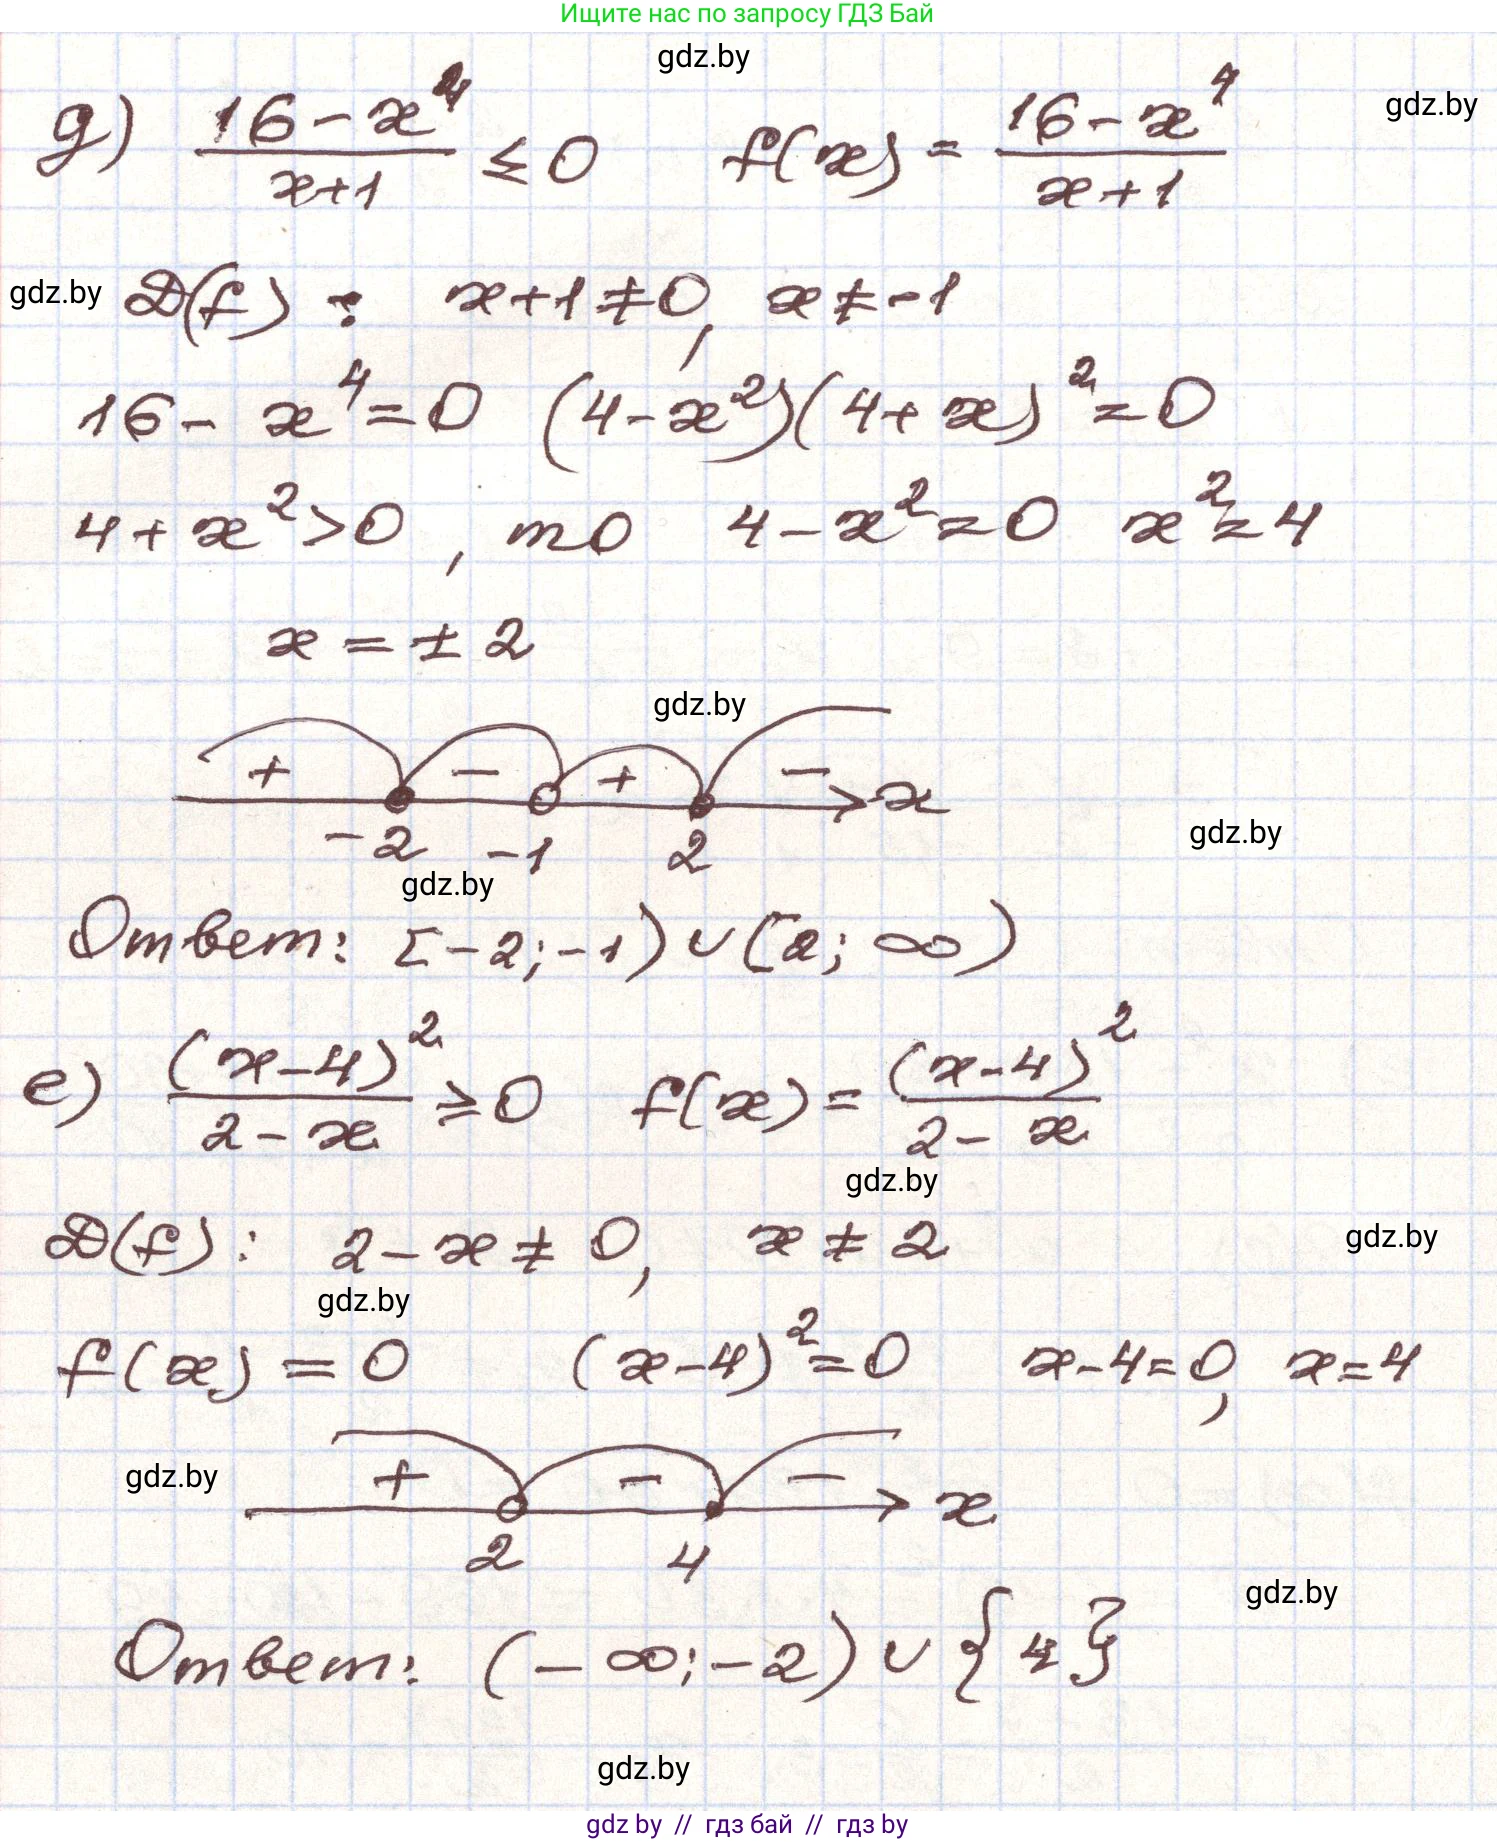 Ищите нас по запросу ГДЗ Бай
gdz.by
gdz.by
д) (16-x⁴)/(x+1) ≤ 0   f(x) = (16-x⁴)/(x+1)
gdz.by
D(f) : x+1≠0, x≠-1
16-x⁴=0 (4-x²)(4+x)²=0
4+x²>0, то 4-x²=0 x²=4
x = ±2
gdz.by
+ - + - x
-2 -1 2
gdz.by
gdz.by
Ответ: [-2;-1)∪[2; ∞)
е) (x-4)²/(2-x) ≥ 0   f(x) = (x-4)²/(2-x)
gdz.by
D(f): 2-x≠0, x≠2
gdz.by
gdz.by
f(x)=0 (x-4)²=0 x-4=0, x=4
gdz.by
+ - - x
2 4
gdz.by
Ответ: (-∞;-2)∪{4}
gdz.by
gdz by // гдз бай // гдз by